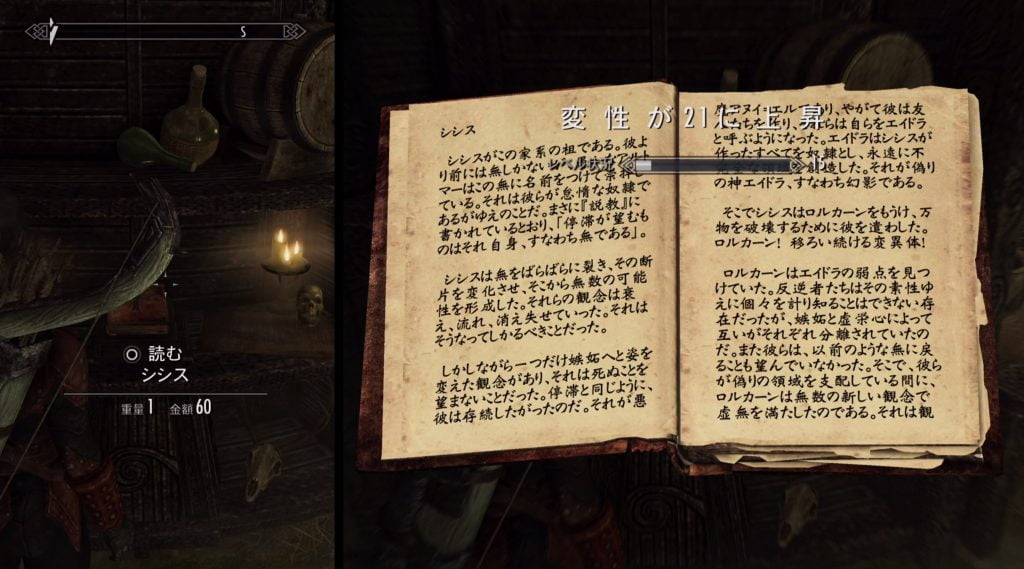 S
読む
シシス
重量 1 金額 60
変性が21に上昇
シシス
シシスがこの家系の祖である。彼よ
り前には無しかない
マーはこの無に名前をつけて崇拝し
ている。それは彼らが怠惰な奴隷で
あるがゆえのことだ。まさに『説教』に
書かれているとおり、「停滞が望むも
のはそれ自身、すなわち無である」。
シシスは無をばらばらに裂き、その断
片を変化させ、そこから無数の可能
性を形成した。それらの観念は衰
え、流れ、消え失せていった。それは
そうなってしかるべきことだった。
しかしながら一つだけ嫉妬へと姿を
変えた観念があり、それは死ぬことを
望まないことだった。停滞と同じように、
彼は存続したがったのだ。それが悪
魔アヌイ・エルであり、やがて彼は友
たちを作り、彼らは自らをエイドラ
と呼ぶようになった。エイドラはシシスが
作ったすべてを奴隷とし、永遠に不
完全な領域を創造した。それが偽り
の神エイドラ、すなわち幻影である。
そこでシシスはロルカーンをもうけ、万
物を破壊するために彼を遣わした。
ロルカーン! 移ろい続ける変異体!
ロルカーンはエイドラの弱点を見つ
けていた。反逆者たちはその素性ゆ
えに個々を計り知ることはできない存
在だったが、嫉妬と虚栄心によって
互いがそれぞれ分離されていたの
だ。また彼らは、以前のような無に戻
ることも望んでいなかった。そこで、彼ら
が偽りの領域を支配している間に、
ロルカーンは無数の新しい観念で
虚無を満たしたのである。それは観